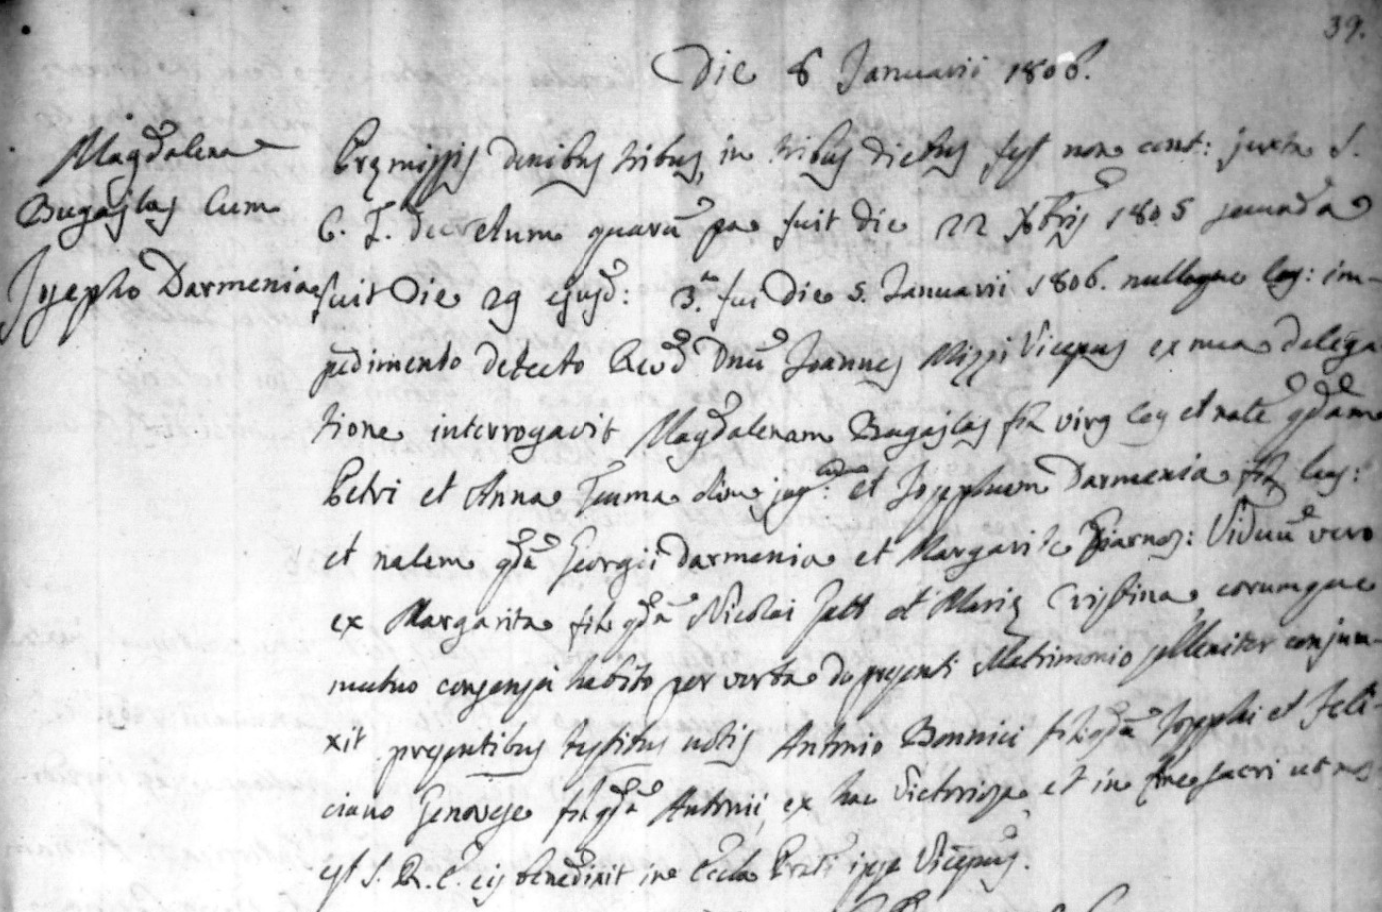 39.
Die 6 Januarii 1806.
Magdalena
Bugajlas Cum
Josepho Darmenia
Premissis denibus tribus, in tribus diebus fest non cont: juxta S.
C. T. decretum quarū pa fuit die 22 Xbris 1805 secunda
fuit Die 29 ejusd: 3.ª fui Die 5. Januarii 1806. nulloque leg: im-
pedimento detecto Revd Dnus Joannes Mizzi Viceprus ex mea delega
tione interrogavit Magdalenam Bugajlas fil virg leg et natē qdam
Petri et Anna Teuma olim jug: et Josephum Darmenia fil leg:
et nalem qda Georgii Darmenia et Margarite Viduū vero
ex Margarita fil qda Nicolai Jatt et Marie Cristina eorumque
mutuo consensu habito per verba de presenti Matrimonio solleniter conjun-
xit presentibus testibus notis Antonio Bonnici fil qda Josephi et Feli-
ciano Genovese fil qda Antonii, ex hac Victoriosa et in fine sacri ut mos
est S. R. E. eis benedixit in Eccla Prati ipse Viceprus.